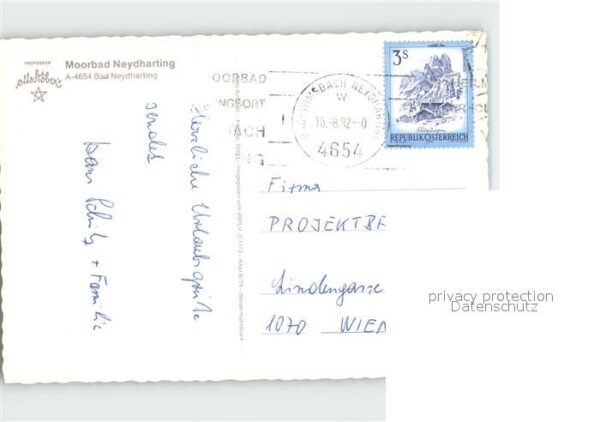 PROFESSOR
Moorbad Neydharting
A-4654 Bad Neydharting
OORBAD
NGSORT
ACH
NG
16.-8.82-0
4654
3S
REPUBLIK ÖSTERREICH
Herzliche Urlaubsgrüße
sendet
Hans Schulz + Familie
Firma
PROJEKTBE
Lindengasse
1070 WIEN
privacy protection
Datenschutz